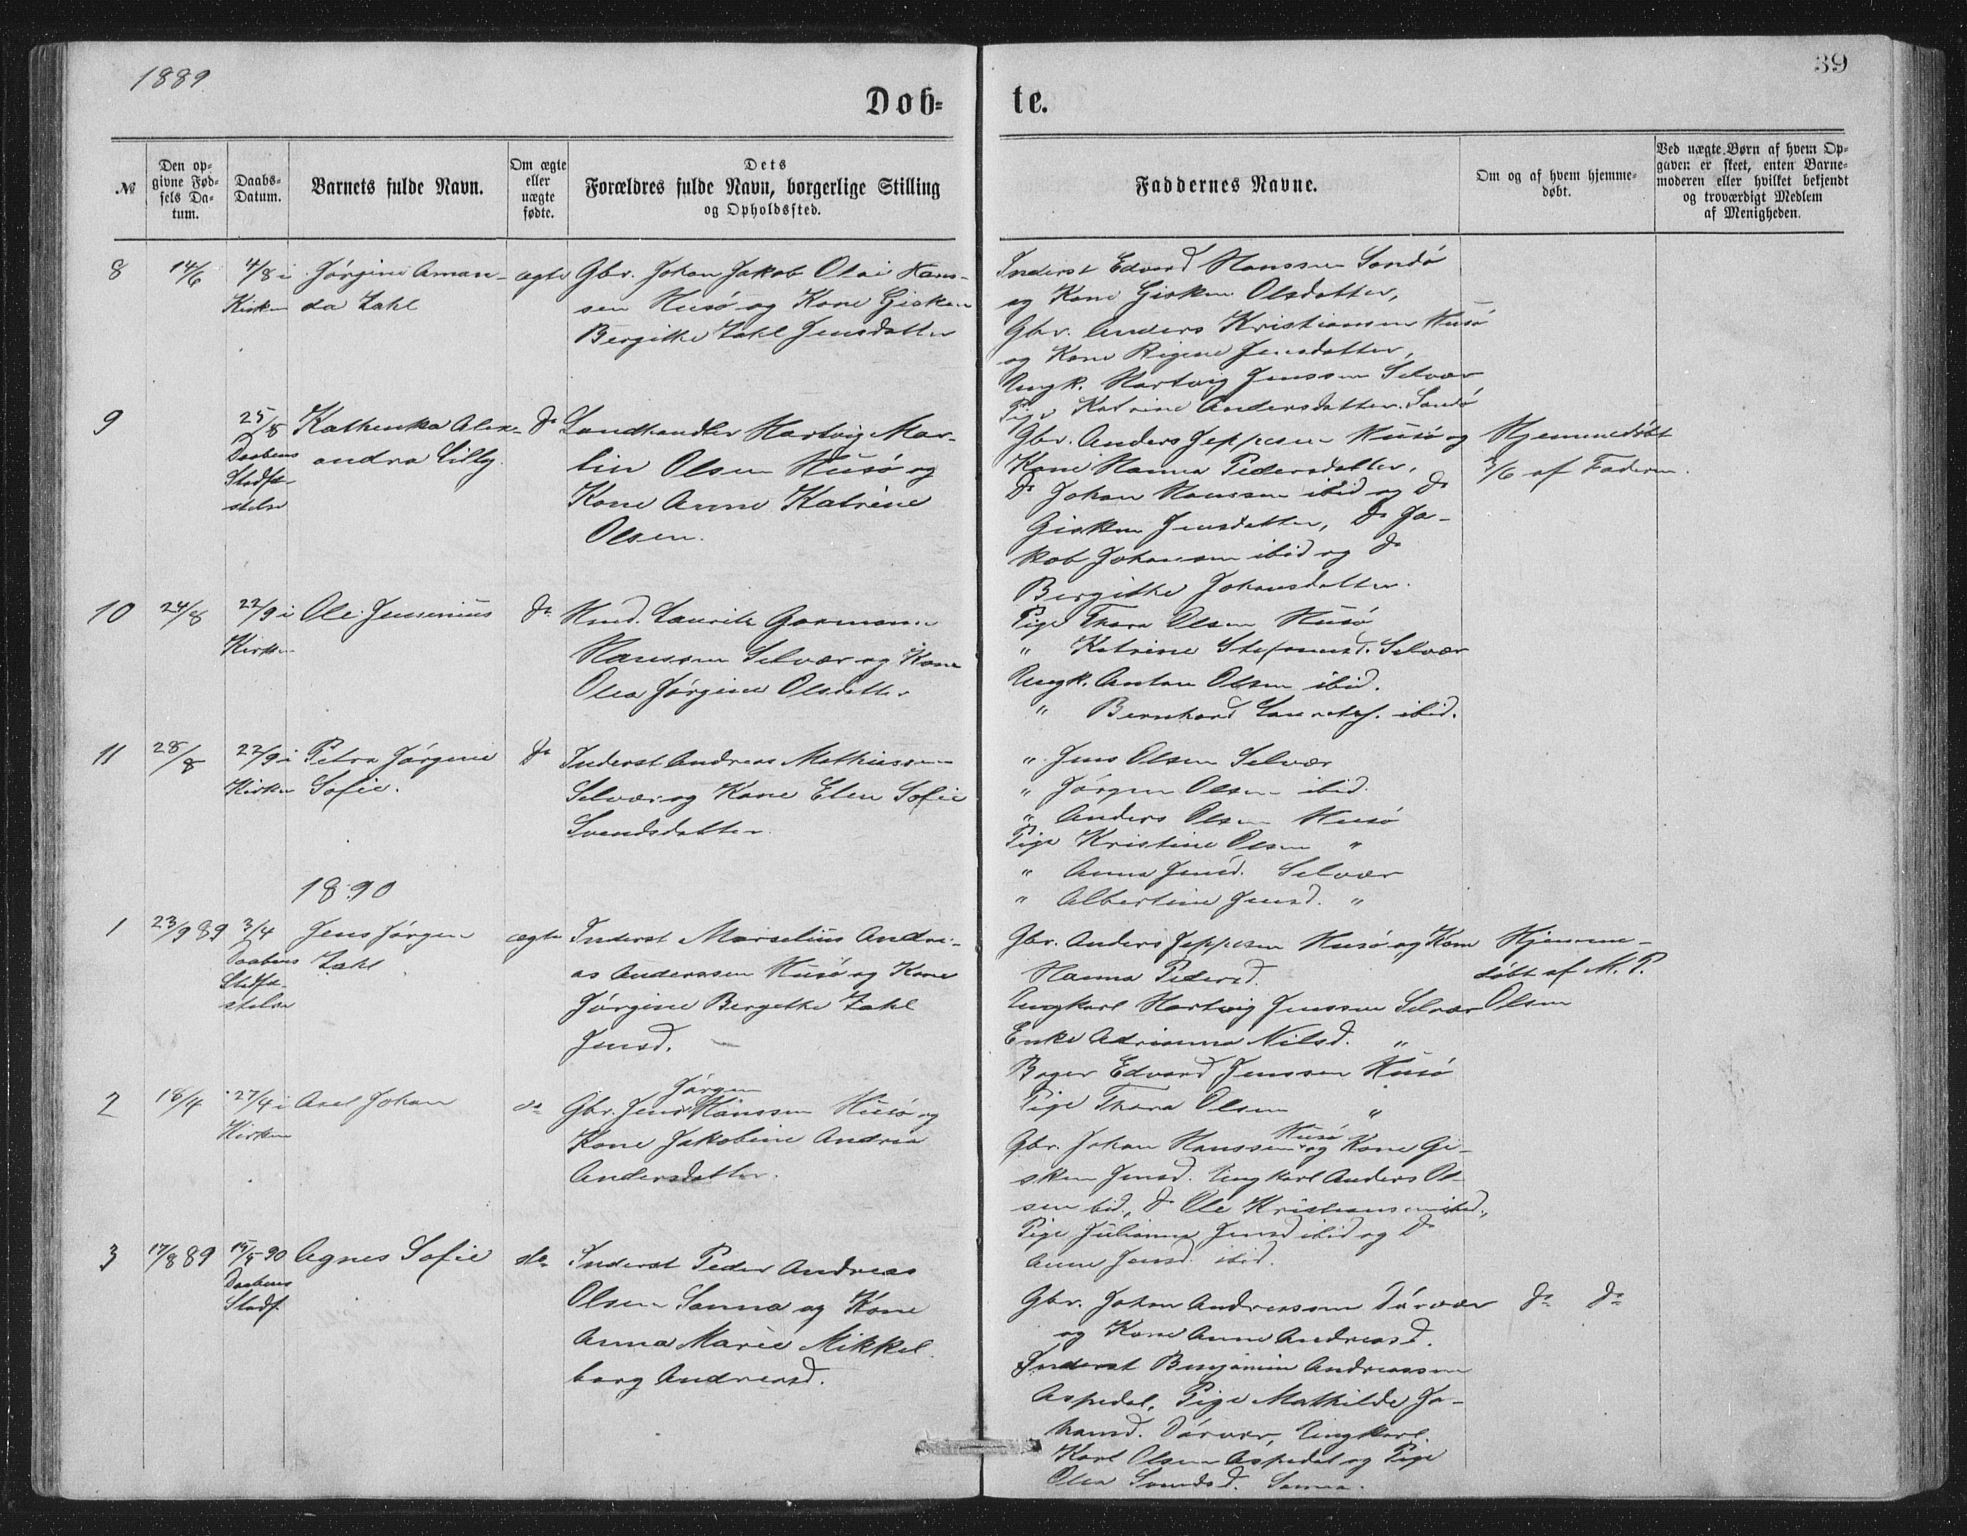 1889
39
Døb-
te.
№
Den op-
givne Fød-
sels Da-
tum.
Daabs-
Datum.
Barnets fulde Navn.
Om ægte
eller
uægte
fødte.
Dets
Forældres fulde Navn, borgerlige Stilling
og Opholdssted.
Faddernes Navne.
Om og af hvem hjemme-
døbt.
Ved uægte Børn af hvem Op-
gaven er skeet, enten Barne-
moderen eller hvilket bekjendt
og troværdigt Medlem
af Menigheden.
8
14/6
4/8 i
Kirken
Jørgine Aman-
da Zahl
ægte
Gbr. Johan Jakob Olai Hans-
sen Husø og Kone Gisken
Bergithe Zahl Jensdatter
Inderst Edvard Hanssen Sandø
og Kone Gisken Olsdatter,
Gbr. Anders Kristiansen Husø
og Kone Jensdatter,
Ungk. Hartvig Jenssen Selvær
Pige Katrine Andersdatter Sandø
9
25/8
Daabens
Stadfæ-
stelse
Kathenka Alex-
andra Lilly.
do
Landhandler Hartvig Mar-
tin Olsen Husø og
Kone Anne Katrine
Olsen.
Gbr. Anders Jeppesen Husø og
Kone Hanna Pedersdatter,
do Johan Hanssen ibid og do
Gisken Jensdatter, do Ja-
kob Johansen ibid og do
Bergithe Johansdatter.
Hjemmedøbt
/6 af Faderen.
10
24/8
22/9 i
Kirken
Ole Jensenius
do
Hmd. Lauritz
Hanssen Selvær og Kone
Olea Jørgine Olsdatter
Pige Thora Olsen Husø
" Katrine Stefansd. Selvær
Ungk. Anton Olsen ibid.
" Bernhard ibid.
11
28/8
22/9 i
Kirken
Petra Jørgine
Sofie.
do
Inderst Andreas Mathiesen
Selvær og Kone Elen Sofie
Svendsdatter
" Jens Olsen Selvær
" Jørgen Olsen ibid.
" Anders Olsen Husø
Pige Kristine Olsen "
" Anna Jensd. Selvær
" Albertine Jensd. "
1890
1
23/9 89
3/4
Daabens
Stadfæ-
stelse
Jens Jørgen
Zahl
ægte
Inderst Marselius Andre-
as Anderssen Husø og Kone
Jørgine Bergethe Zahl
Jensd.
Gbr. Anders Jeppesen Husø og Kone
Hanna Pedersd.
Ungkarl Hartvig Jenssen Selvær
Enke Adrianna Nilsd. "
Bager Edvard Jenssen Husø
Pige Thora Olsen "
Hjemme-
døbt af M. P.
Olsen
2
18/4
27/4 i
Kirken
Axel Johan
do
Jørgen
Gbr. Jens Hanssen Husø og
Kone Jakobine Andrea
Andersdatter.
Husø
Gbr. Johan Hanssen og Kone Gi-
sken Jensd. Ungkarl Anders Ol-
sen ibid, do Ole Kristiansen ibid.,
Pige Julianna Jensd ibid og do
Anne Jensd. ibid.
3
17/8 89
90
Daabens
Stadf.
Agnes Sofie
do
Inderst Peder Andreas
Olsen Sanna og Kone
Anna Marie Mikkel
borg Andreasd.
Gbr. Johan Andreassen Dørvær
og Kone Anne Andreasd.
Inderst Benjamin Andreassen
Aspedal, Pige Mathilde Jo-
hansd. Dørvær, Ungkarl
Karl Olsen Aspedal og Pige
Olea Svendsd. Sanna.
do do